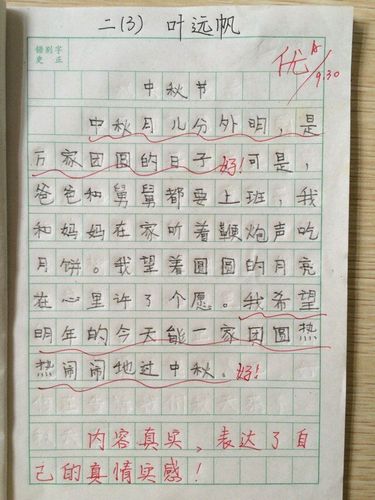 二(3) 叶远帆
错别字
更 正
优 A
9.30
中秋节
中秋月儿分外明，是
万家团圆的日子好！可是，
爸爸和舅舅都要上班，我
和妈妈在家听着鞭炮声吃
月饼。我望着圆圆的月亮
在心里许了个愿。我希望
明年的今天能一家团圆热
热闹闹地过中秋。好！
内容真实、表达了自
己的真情实感！